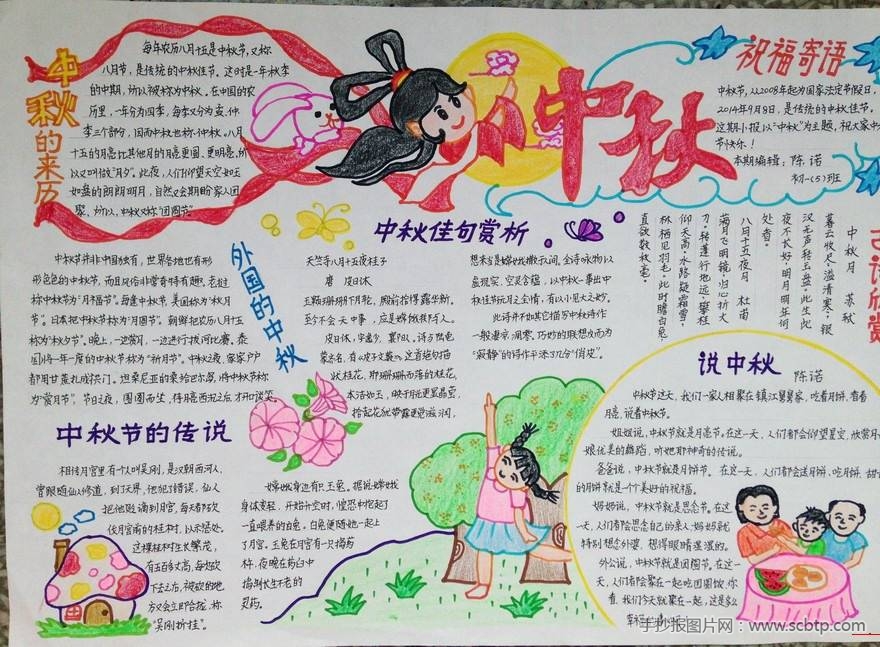 中秋的来历
每年农历八月十五是中秋节,又称
八月节,是传统的中秋佳节。这时是一年秋季
的中期,所以被称为中秋。在中国的农
历里,一年分为四季,每季又分为孟、仲、
季三个部分,因而中秋也称仲秋。八月
十五的月亮比其他月的月亮更圆、更明亮,所
以又叫做"月夕"。此夜,人们仰望天空如玉
如盘的朗朗明月,自然又会期盼家人团
聚。所以,中秋又称"团圆节"。
中秋
祝福寄语
中秋节,从2008年起为国家法定节假日。
2014年9月8日,是传统的中秋佳节。
这期小报以"中秋"为主题,祝大家中
节快乐!
本期编辑:陈诺
初一(5)班
外国的中秋
中秋节并非中国独有,世界各地也有形
形色色的中秋节,而且风俗非常奇特有趣。老挝
称中秋节为"月福节"。
日本把中秋节称为"月圆节"。朝鲜把农历八月十五
称为"秋夕节"。晚上,一边赏月,一边进行拔河比赛。泰
国将一年一度的中秋节称为"祈月节"。中秋之夜,家家户户
都用甘蔗扎成拱门。
为"赏月节"。节日之夜,团圆而坐,
中秋佳句赏析
天竺寺八月十五夜桂子
唐 皮日休
玉颗珊珊下月轮,殿前拾得露华新。
至今不会天中事,应是嫦娥掷与人。
状桂花,
拾起花犹带露更觉滋润,
想来该是嫦娥撒于人间。全诗咏物以
虚现实,空灵含蕴,以中秋一事出中
秋佳节玩月之余情,有以小见大之妙。
此诗并不如其它描写中秋诗作
一般凄凉、凋零。巧妙的联想反而为
"寂静"的诗作平添了几分"俏皮"。
古诗欣赏
中秋月 苏轼
暮云收尽溢清寒,银
汉无声转玉盘。此生此
夜不长好,明月明年何
处看。
八月十五夜月 杜甫
满月飞明镜,归心折大
刀。转蓬行地远,攀桂
仰天高。水路疑霜雪,
林栖见羽毛。此时瞻白兔,
直欲数秋毫。
中秋节的传说
相传月宫里有个人叫吴刚,是汉朝西河人,
曾跟随仙人修道,到了天界,他犯了错误,仙人
把他贬谪到月宫,每天都砍
伐月宫前的桂树,以示惩处。
这棵桂树生长繁茂,
有五百多丈高,每次砍
下去之后,被砍的地
方又会立即合拢,称
"吴刚折桂"。
嫦娥身边有只玉兔。据说嫦娥
身体变轻,开始升空时,惶恐中抱起了
一直喂养的白兔,白兔便随她一起上
了月宫。玉兔在月宫有一只捣药
杵,夜晚在药臼中
捣制长生不老的
灵药。
说中秋
陈诺
中秋节这天,我们一家人相聚在镇江舅舅家,吃着月饼,看着
月亮,说着中秋节。
姐姐说,中秋节就是月亮节。在这一天,人们都会仰望星空,欣赏月
娘优美的舞蹈,听她那神奇的传说。
爸爸说,中秋节就是月饼节。在这一天,人们都会送月饼、吃月饼,甜
的月饼就是一个美好的祝福。
妈妈说,中秋节就是思念节。在这
一天,人们都会思念自己的亲人;妈妈就
特别想念外婆,想得眼睛湿湿的。
外公说,中秋节就是团圆节。在这一
天,人们都会聚在一起吃团圆饭。你
看,我们今天就聚在一起,这是多么
手抄报图片网:www.scbtp.com